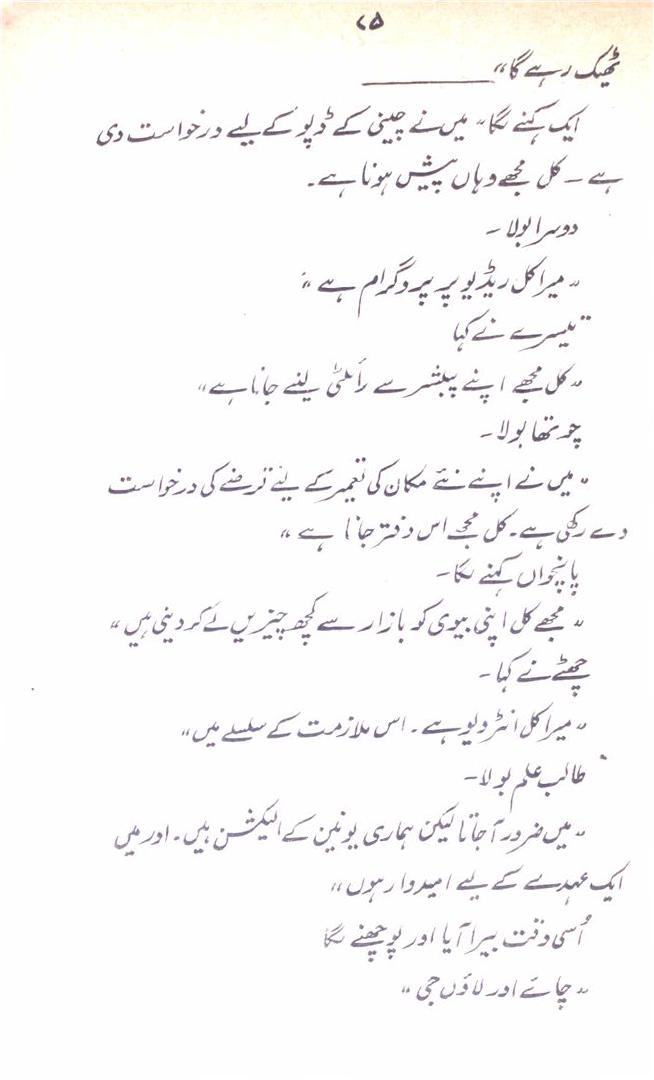 ۷۵
ٹھیک رہے گا“ ________
ایک کہنے لگا ” میں نے چینی کے ڈپو کے لیے درخواست دی
ہے ۔ کل مجھے وہاں پیش ہونا ہے۔
دوسرا بولا ۔
” میرا کل ریڈیو پر پروگرام ہے “
تیسرے نے کہا
” کل مجھے اپنے پبلشر سے رائلٹی لینے جانا ہے “
چوتھا بولا ۔
” میں نے اپنے نئے مکان کی تعمیر کے لیے قرضے کی درخواست
دے رکھی ہے۔ کل مجھے اس دفتر جانا ہے “
پانچواں کہنے لگا ۔
” مجھے کل اپنی بیوی کو بازار سے کچھ چیزیں لے کر دینی ہیں “
چھٹے نے کہا ۔
” میرا کل انٹرویو ہے ۔ اس ملازمت کے سلسلے میں “
طالب علم بولا ۔
” میں ضرور آ جاتا لیکن ہماری یونین کے الیکشن ہیں۔ اور میں
ایک عہدے کے لیے امیدوار ہوں “
اُسی وقت بیرا آیا اور پوچھنے لگا
” چائے اور لاؤں جی “